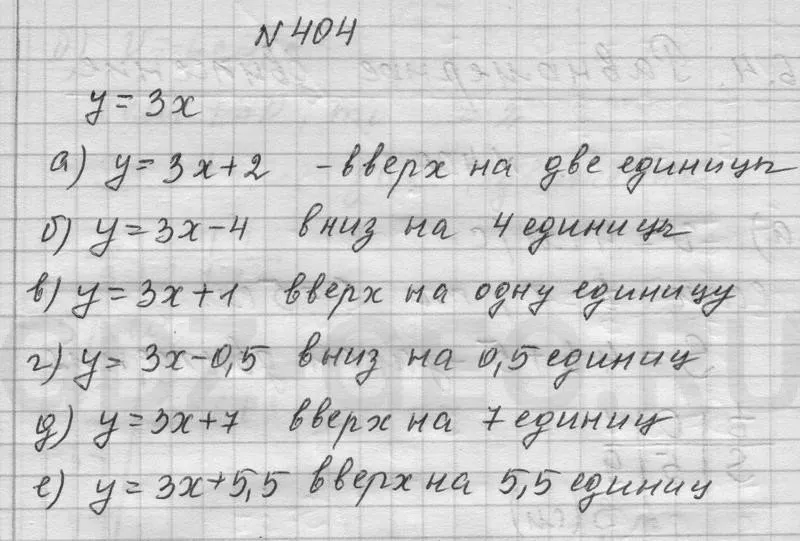 N 404
y = 3x
а) y = 3x + 2 - вверх на две единицы
б) y = 3x - 4 вниз на 4 единицы
в) y = 3x + 1 вверх на одну единицу
г) y = 3x - 0,5 вниз на 0,5 единиц
д) y = 3x + 7 вверх на 7 единиц
е) y = 3x + 5,5 вверх на 5,5 единиц